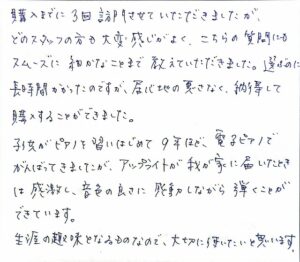 購入までに3回訪問させていただきましたが、
どのスタッフの方も大変感じがよく、こちらの質問にも
スムーズに細かなことまで教えていただきました。選ぶのに
長時間かかったのですが、居心地の悪さなく、納得して
購入することができました。
子供がピアノを習いはじめて9年ほど、電子ピアノで
がんばってきましたが、アップライトが我が家に届いたとき
は感激し、音色の良さに感動しながら弾くことが
できています。
生涯の趣味となるものなので、大切に使いたいと思います。